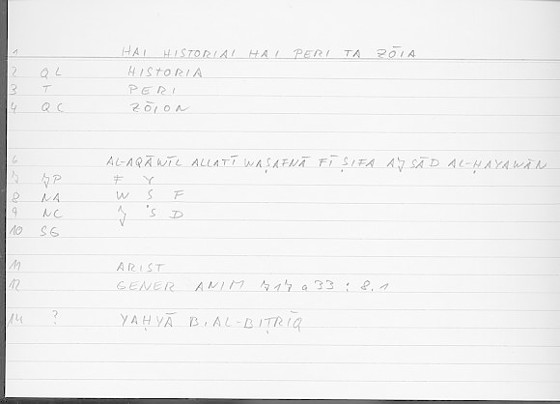 1 HAI HISTORIAI HAI PERI TA ZŌIA
2 QL HISTORIA
3 T PERI
4 QC ZŌION
6 AL-AQĀWĪL ALLATĪ WAṢAFNĀ FĪ ṢIFA AJSĀD AL-ḤAYAWĀN
7 JP F Y
8 NA W Ṣ F
9 NC J S D
10 SG
11 ARIST
12 GENER ANIM 717 a 33 : 8.1
14 ? YAḤYĀ B. AL-BIṬRĪQ